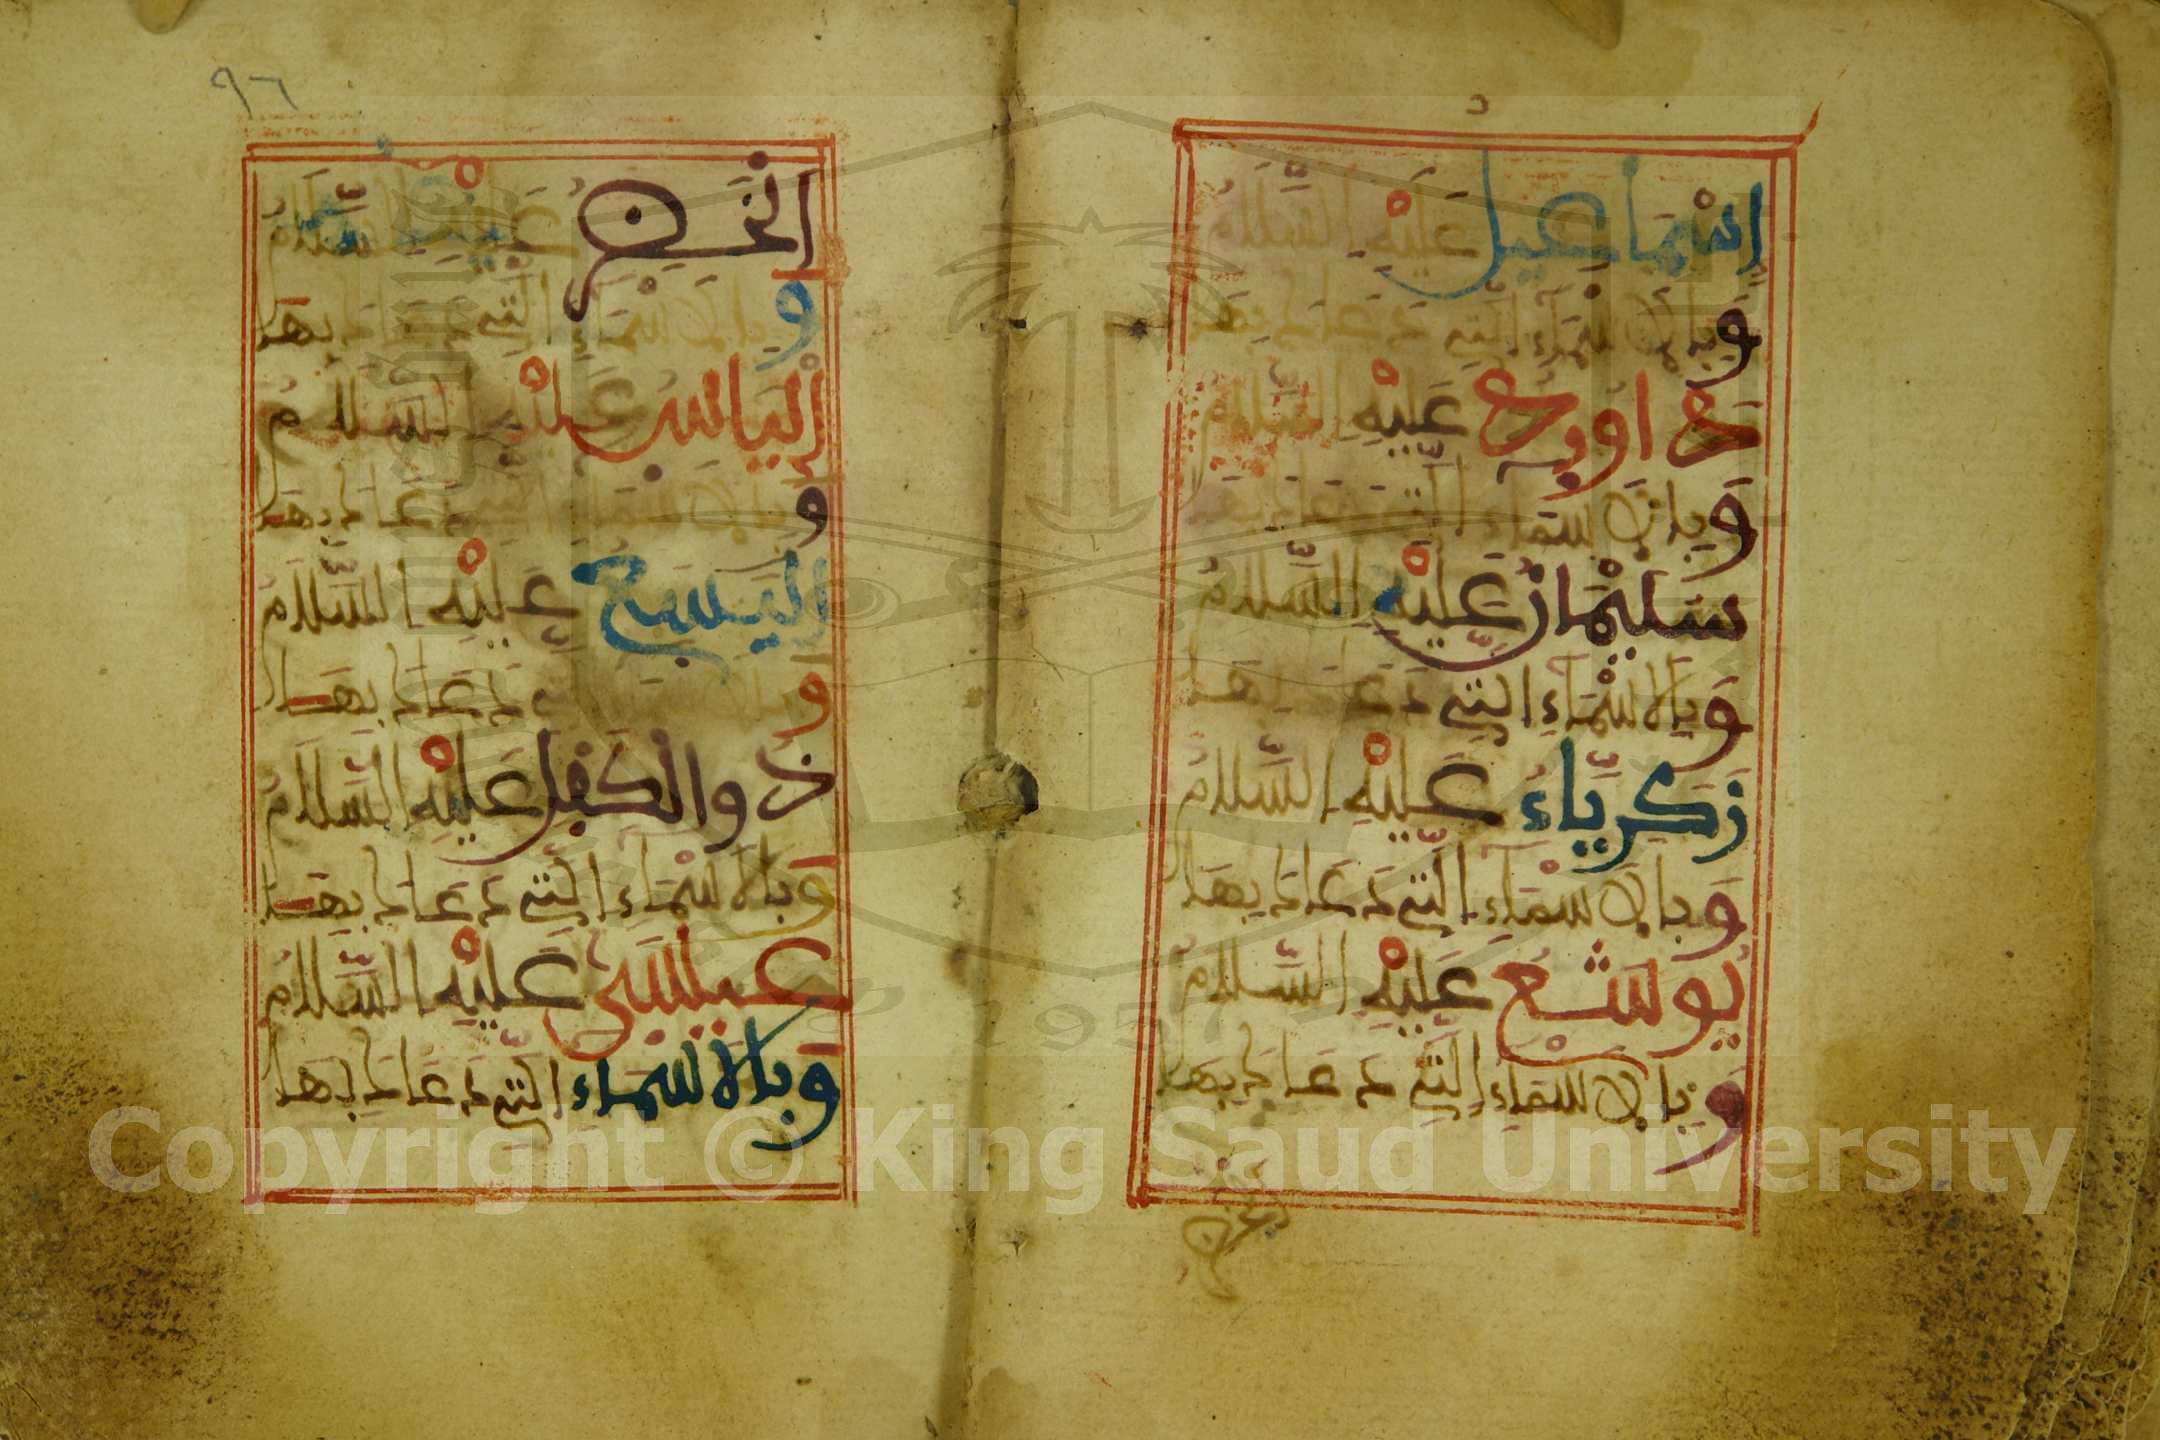 إسْمَاعِيل عَلَيْهِ السَّلَامُ
وَبِالاسْمَاءِ التِي دَعَاكَ بِهَا
دَاوُودُ عَلَيْهِ السَّلَامُ
وَبِالاسْمَاءِ التِي دَعَاكَ بِهَا
سُلَيْمَانُ عَلَيْهِ السَّلَامُ
وَبِالاسْمَاءِ التِي دَعَاكَ بِهَا
زَكَرِيَّاءُ عَلَيْهِ السَّلَامُ
وَبِالاسْمَاءِ التِي دَعَاكَ بِهَا
يُوشَعُ عَلَيْهِ السَّلَامُ
وَبِالاسْمَاءِ التِي دَعَاكَ بِهَا
٩٦
الْخَضِرُ عَلَيْهِ السَّلَامُ
وَبِالاسْمَاءِ التِي دَعَاكَ بِهَا
إلْيَاسُ عَلَيْهِ السَّلَامُ
وَبِالاسْمَاءِ التِي دَعَاكَ بِهَا
الْيَسَعُ عَلَيْهِ السَّلَامُ
وَبِالاسْمَاءِ التِي دَعَاكَ بِهَا
ذُو الْكِفْلِ عَلَيْهِ السَّلَامُ
وَبِالاسْمَاءِ التِي دَعَاكَ بِهَا
عِيسَى عَلَيْهِ السَّلَامُ
وَبِالاسْمَاءِ التِي دَعَاكَ بِهَا
1957
Copyright © King Saud University